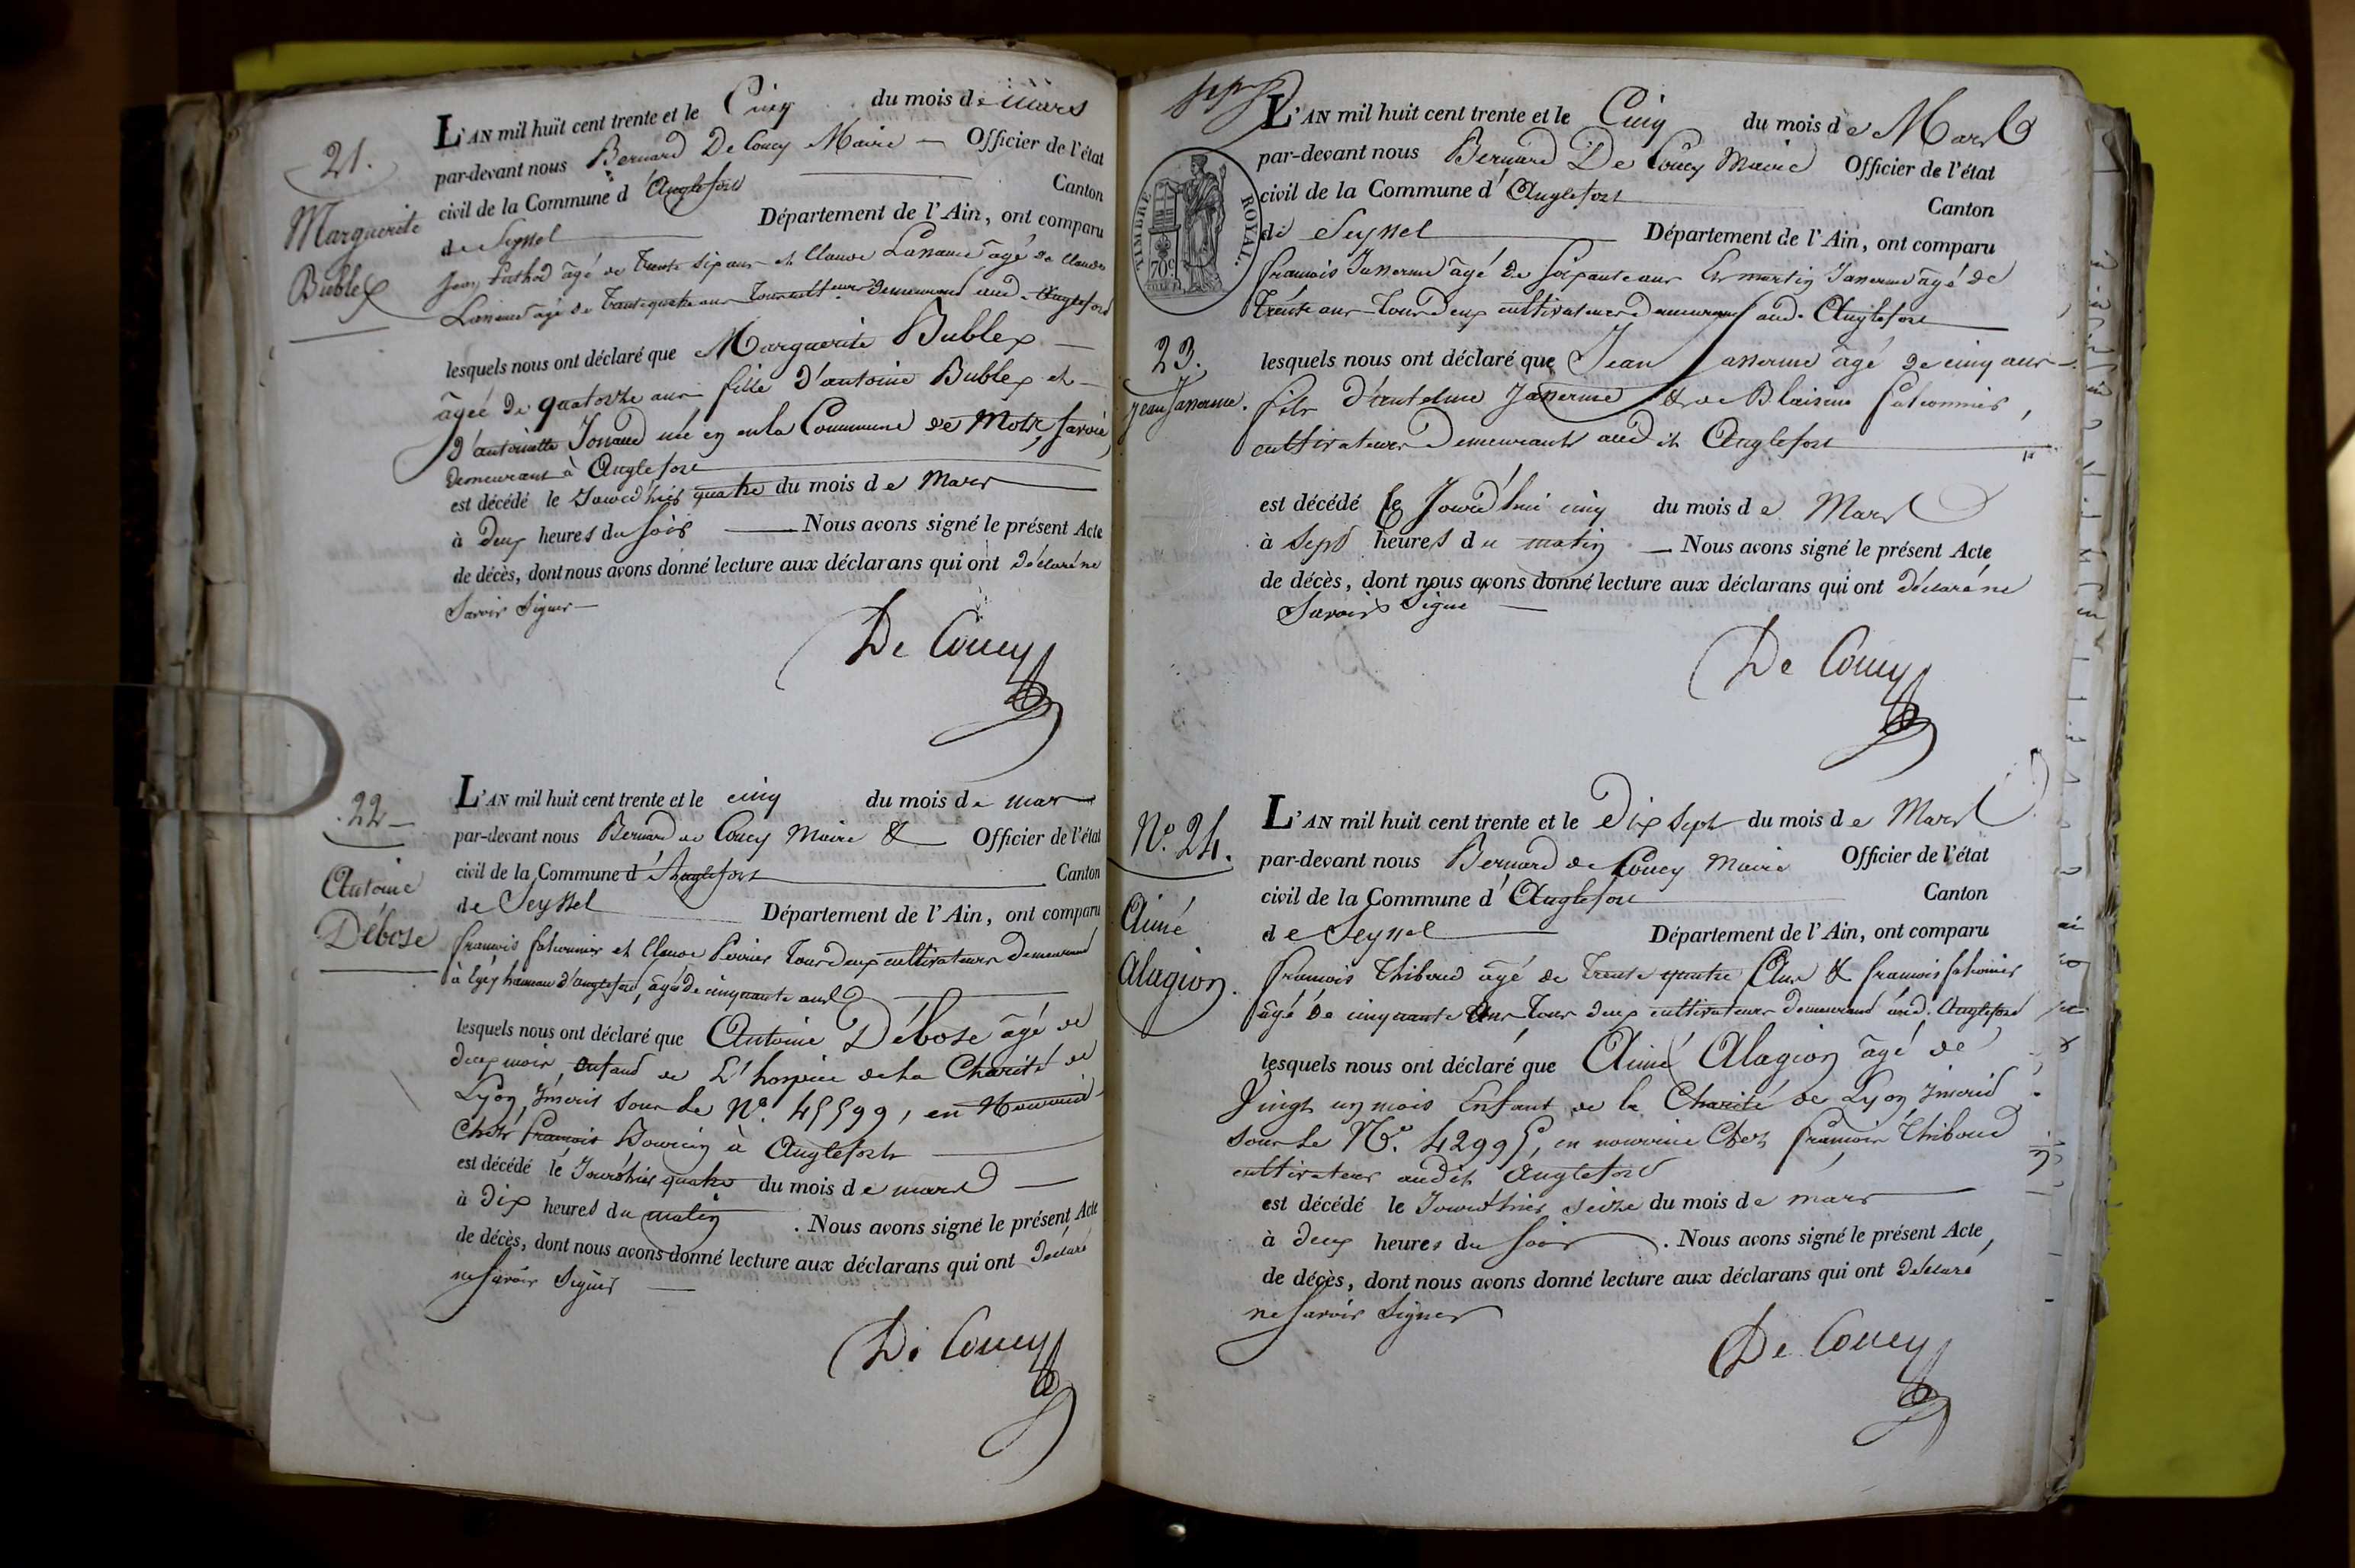 21.
Marguerite
Bublex
L'AN mil huit cent trente et le Cinq du mois de mars
par-devant nous Bernard De Coucy Maire Officier de l'état
civil de la Commune d'Anglefort Canton
de Seyssel Département de l'Ain, ont comparu
Jean âgé de trente six ans et Claude âgé de Claude
âgé de trente quatre ans tous cultivateurs demeurant aud. Anglefort
lesquels nous ont déclaré que Marguerite Bublex
âgée de quatorze ans fille d'antoine Bublex et
d'antoinette née en la Commune de Motz, Savoie,
demeurant à Anglefort
est décédé le Jourd'hier quatre du mois de Mars
à Deux heures du soir Nous avons signé le présent Acte
de décès, dont nous avons donné lecture aux déclarans qui ont déclaré ne
Savoir Signer
De Coucy
22
Antoine
Débose
L'AN mil huit cent trente et le cinq du mois de mars
par-devant nous Bernard de Coucy Maire & Officier de l'état
civil de la Commune d'Anglefort Canton
de Seyssel Département de l'Ain, ont comparu
françois falconnier et Claude Perrier tous deux cultivateurs demeurant
à hameau d'anglefort, âgés de cinquante ans
lesquels nous ont déclaré que Antoine Débose âgé de
deux mois, enfant de L'hospice de la Charité de
Lyon, Inscrit sous le N.º 45599, en Nourrice
Chez françois à Anglefort
est décédé le Jourd'hier quatre du mois de mars
à Dix heures du matin . Nous avons signé le présent Acte
de décès, dont nous avons donné lecture aux déclarans qui ont Déclaré
ne Savoir Signer
De Coucy
L'AN mil huit cent trente et le Cinq du mois de Mars
par-devant nous Bernard De Coucy Maire Officier de l'état
civil de la Commune d'Anglefort Canton
de Seyssel Département de l'Ain, ont comparu
TIMBRE ROYAL.
70c
françois Janerme âgé de soixante ans Et martin Janerme âgé de
trente ans tous deux cultivateurs demeurant aud. Anglefort
23.
Jean Janerme.
lesquels nous ont déclaré que Jean Janerme âgé de cinq ans
fils d'antelme Janerme & de Blaisine falconnier,
cultivateurs demeurants audit Anglefort
est décédé le Jourd'hui cinq du mois de Mars
à Sept heures du matin Nous avons signé le présent Acte
de décès, dont nous avons donné lecture aux déclarans qui ont déclaré ne
Savoir Signe
De Coucy
N.º 24.
Aimé
Alagion.
L'AN mil huit cent trente et le Dix Sept du mois de Mars
par-devant nous Bernard de Coucy Maire Officier de l'état
civil de la Commune d'Anglefort Canton
de Seyssel Département de l'Ain, ont comparu
françois Thiboud âgé de trente quatre Ans & françois falconnier
âgé de cinquante Ans tous deux cultivateurs demeurant aud. Anglefort
lesquels nous ont déclaré que Aimé Alagion âgé de
Vingt un mois Enfant de la Charité de Lyon Inscrit
sous le N.º 42995, en nourrice Chez françois Thiboud
cultivateur audit Anglefort
est décédé le Jourd'hier seize du mois de mars
à deux heures du soir . Nous avons signé le présent Acte,
de décès, dont nous avons donné lecture aux déclarans qui ont déclaré
ne Savoir Signer
De Coucy